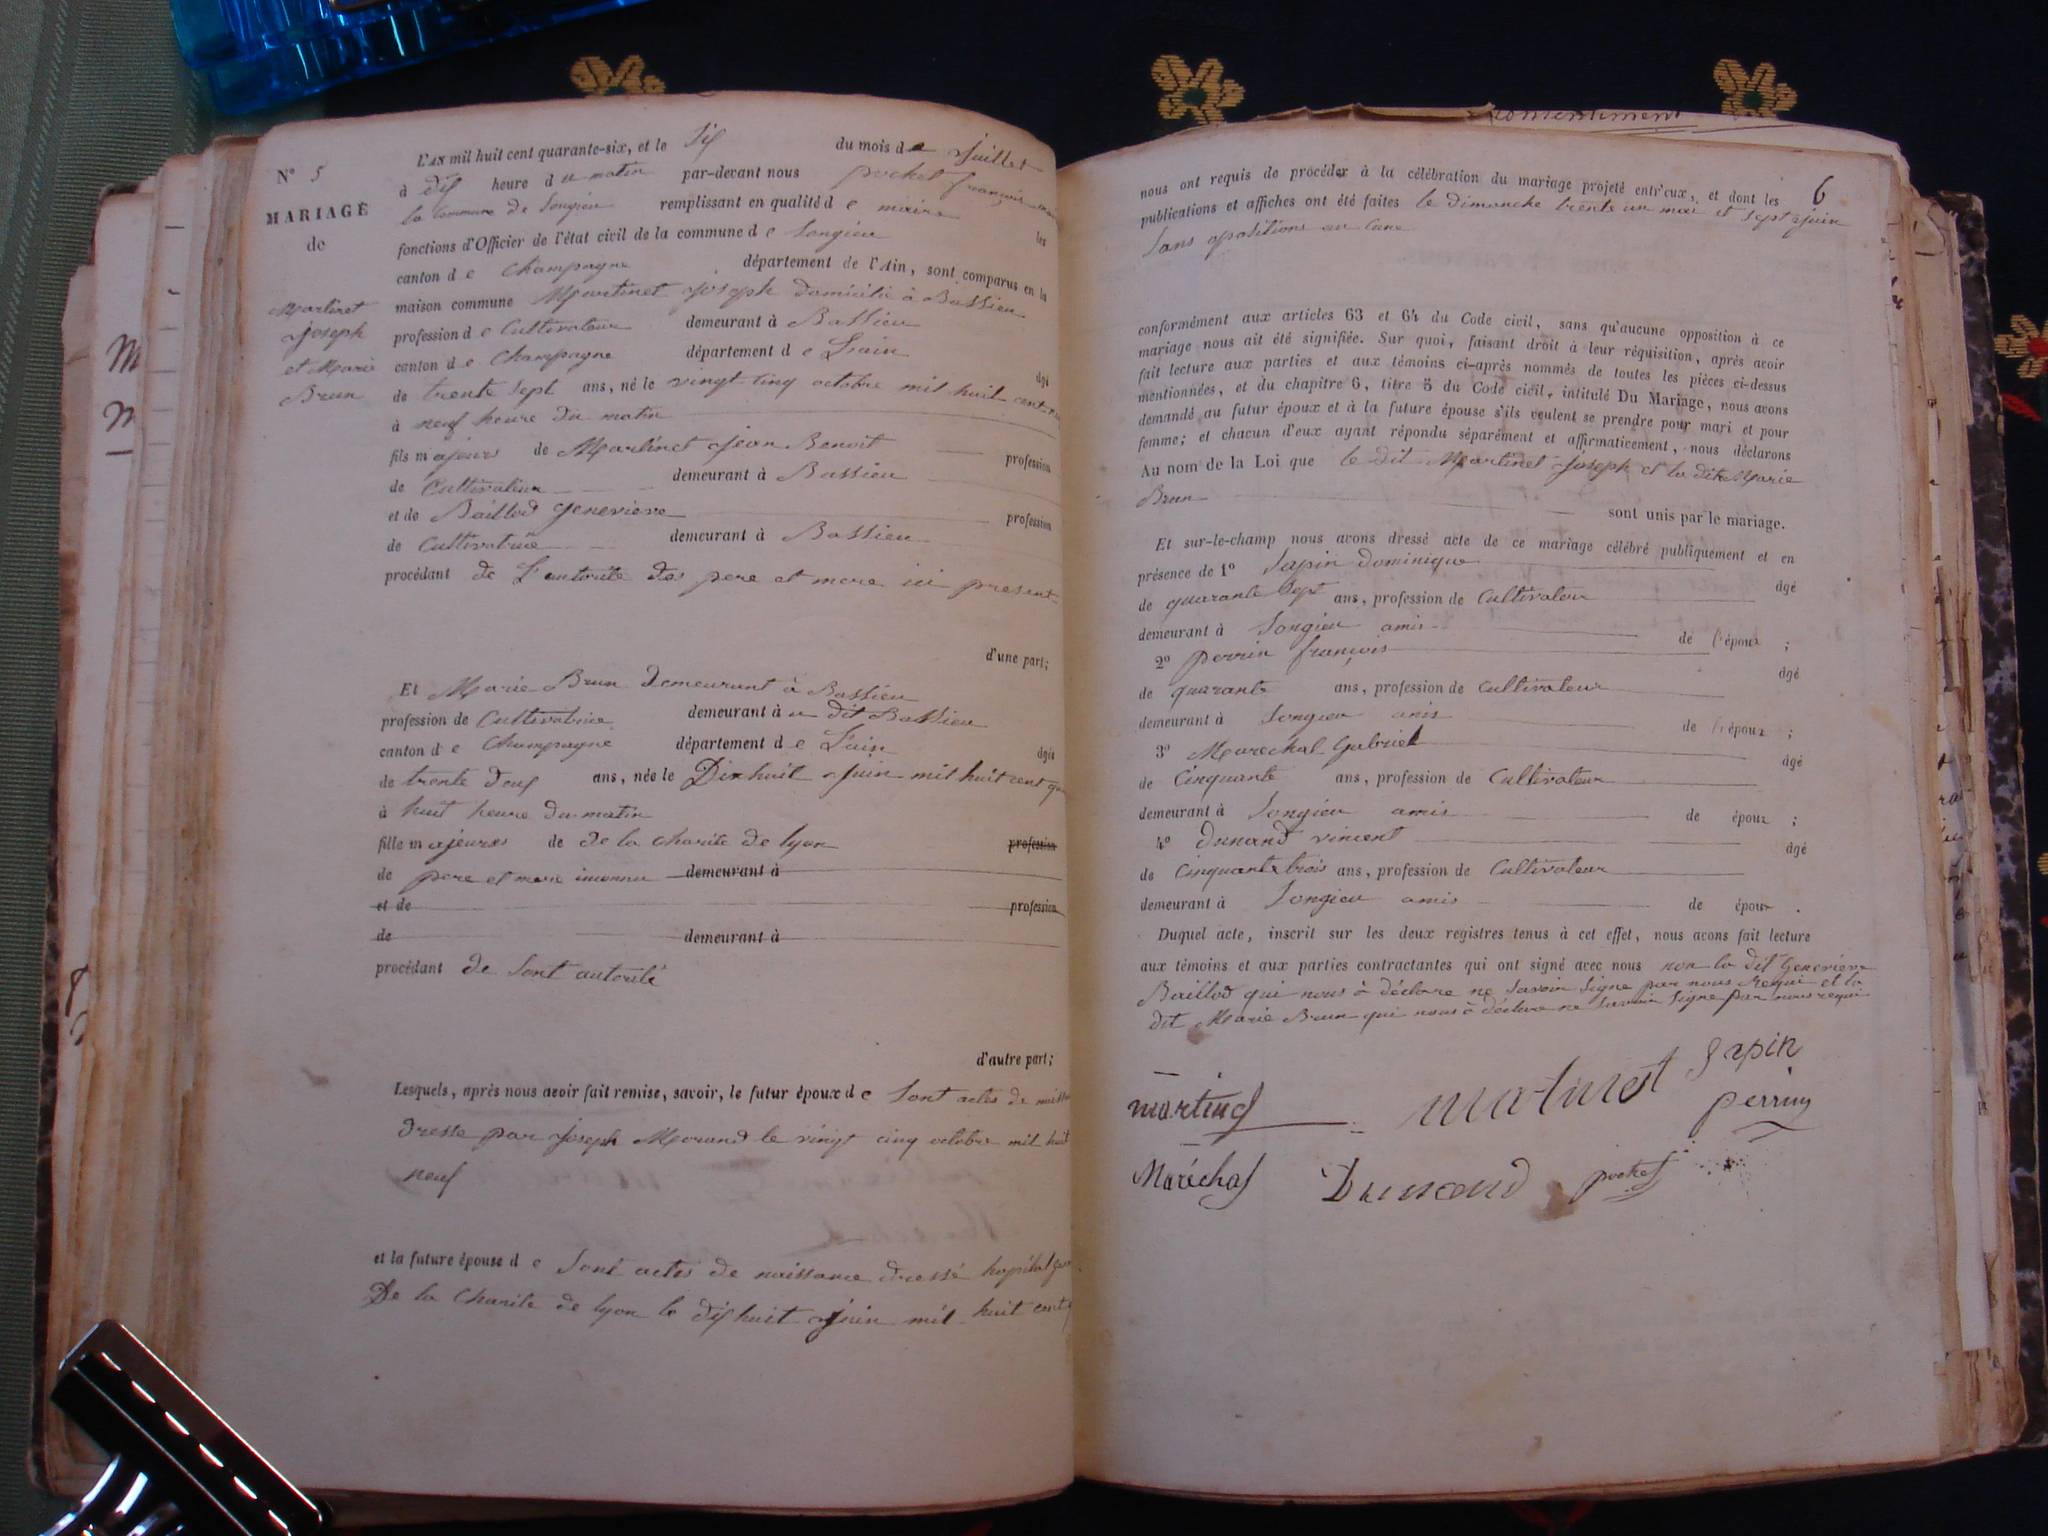 N° 5
MARIAGE
de
Martinet
Joseph
et Marie
Brun
L'AN mil huit cent quarante-six, et le Six du mois de Juillet
à dix heure du matin par-devant nous pochet françois
la Commune de Songieu remplissant en qualité de maire les
fonctions d'Officier de l'état civil de la commune de Songieu
canton de Champagne département de l'Ain, sont comparus en la
maison commune Martinet Joseph domicilié à Bassieu
profession de Cultivateur demeurant à Bassieu
canton de Champagne département de Lain âgé
de trente sept ans, né le vingt-cinq octobre mil huit cent
à neuf heure du matin
fils majeurs de Martinet Jean Benoit profession
de Cultivateur demeurant à Bassieu
et de Baillod Genevieve profession
de Cultivatrice demeurant à Bassieu
procédant de L'autorite des pere et mere ici present
d'une part;
Et Marie Brun Demeurant à Bassieu
profession de Cultivatrice demeurant à u dit Bassieu
canton de Champagne département de Lain âgée
de trente deux ans, née le Dixhuit Juin mil huit cent
à huit heure du matin
fille majeures de de la charite de lyon profession
de pere et mere inconnu demeurant à
et de profession
de demeurant à
procédant de Sont autorité
d'autre part;
Lesquels, après nous avoir fait remise, savoir, le futur époux de Sont actes de
dresse par Joseph Morand le vingt cinq octobre mil huit
neuf
et la future épouse de Sont actes de naissance dressé hopital
De la Charite de lyon le dix huit Juin mil huit cent
6
nous ont requis de procéder à la célébration du mariage projeté entr'eux, et dont les
publications et affiches ont été faites le dimanche trente un mai et sept Juin
Sans opositions au Cune
conformément aux articles 63 et 64 du Code civil, sans qu'aucune opposition à ce
mariage nous ait été signifiée. Sur quoi, faisant droit à leur réquisition, après avoir
fait lecture aux parties et aux témoins ci-après nommés de toutes les pièces ci-dessus
mentionnées, et du chapitre 6, titre 5 du Code civil, intitulé Du Mariage, nous avons
demandé au futur époux et à la future épouse s'ils veulent se prendre pour mari et pour
femme; et chacun d'eux ayant répondu séparément et affirmativement, nous déclarons
Au nom de la Loi que le dit Martinet Joseph et la dite Marie
Brun
sont unis par le mariage.
Et sur-le-champ nous avons dressé acte de ce mariage célébré publiquement et en
présence de 1° Sapin dominique âgé
de quarante Sept ans, profession de Cultivateur
demeurant à Songieu amis de l'époux ;
2° perrin françois âgé
de quarante ans, profession de Cultivateur
demeurant à Songieu amis de l'époux ;
3° Marechal Gabriel âgé
de Cinquante ans, profession de Cultivateur
demeurant à Songieu amis de époux ;
4° Dunand vincent âgé
de Cinquante trois ans, profession de Cultivateur
demeurant à Songieu amis de époux .
Duquel acte, inscrit sur les deux registres tenus à cet effet, nous avons fait lecture
aux témoins et aux parties contractantes qui ont signé avec nous non la dit Genevieve
Baillod qui nous à déclare ne Savoir Signe par nous Requi et la
dit Marie Brun qui nous à déclare ne Savoir Signe par nous requi
Sapin
martinet perrin
Maréchal Dunand pochet